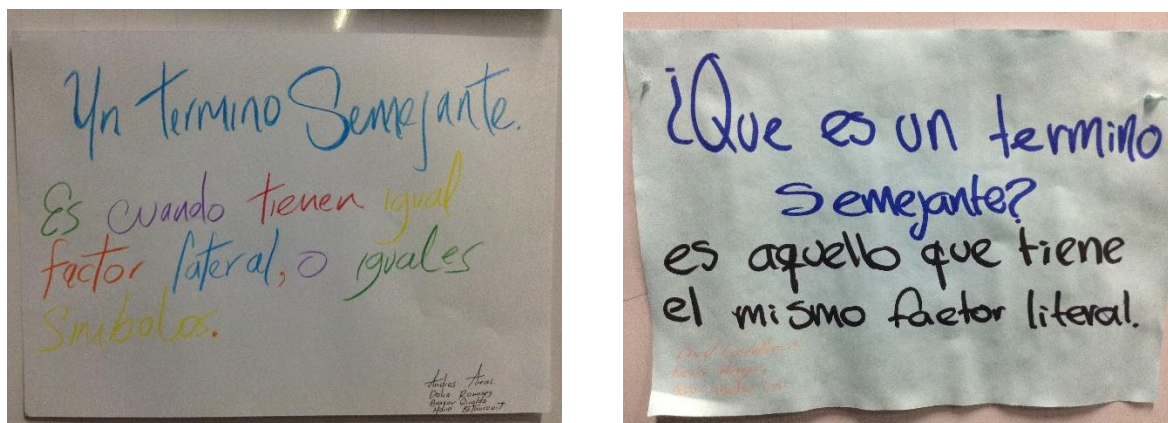 Un termino Semejante.
Es cuando tienen igual
factor lateral, o iguales
Smibolos.
Andres Arias
¿Que es un termino
Semejante?
es aquello que tiene
el mismo factor literal.